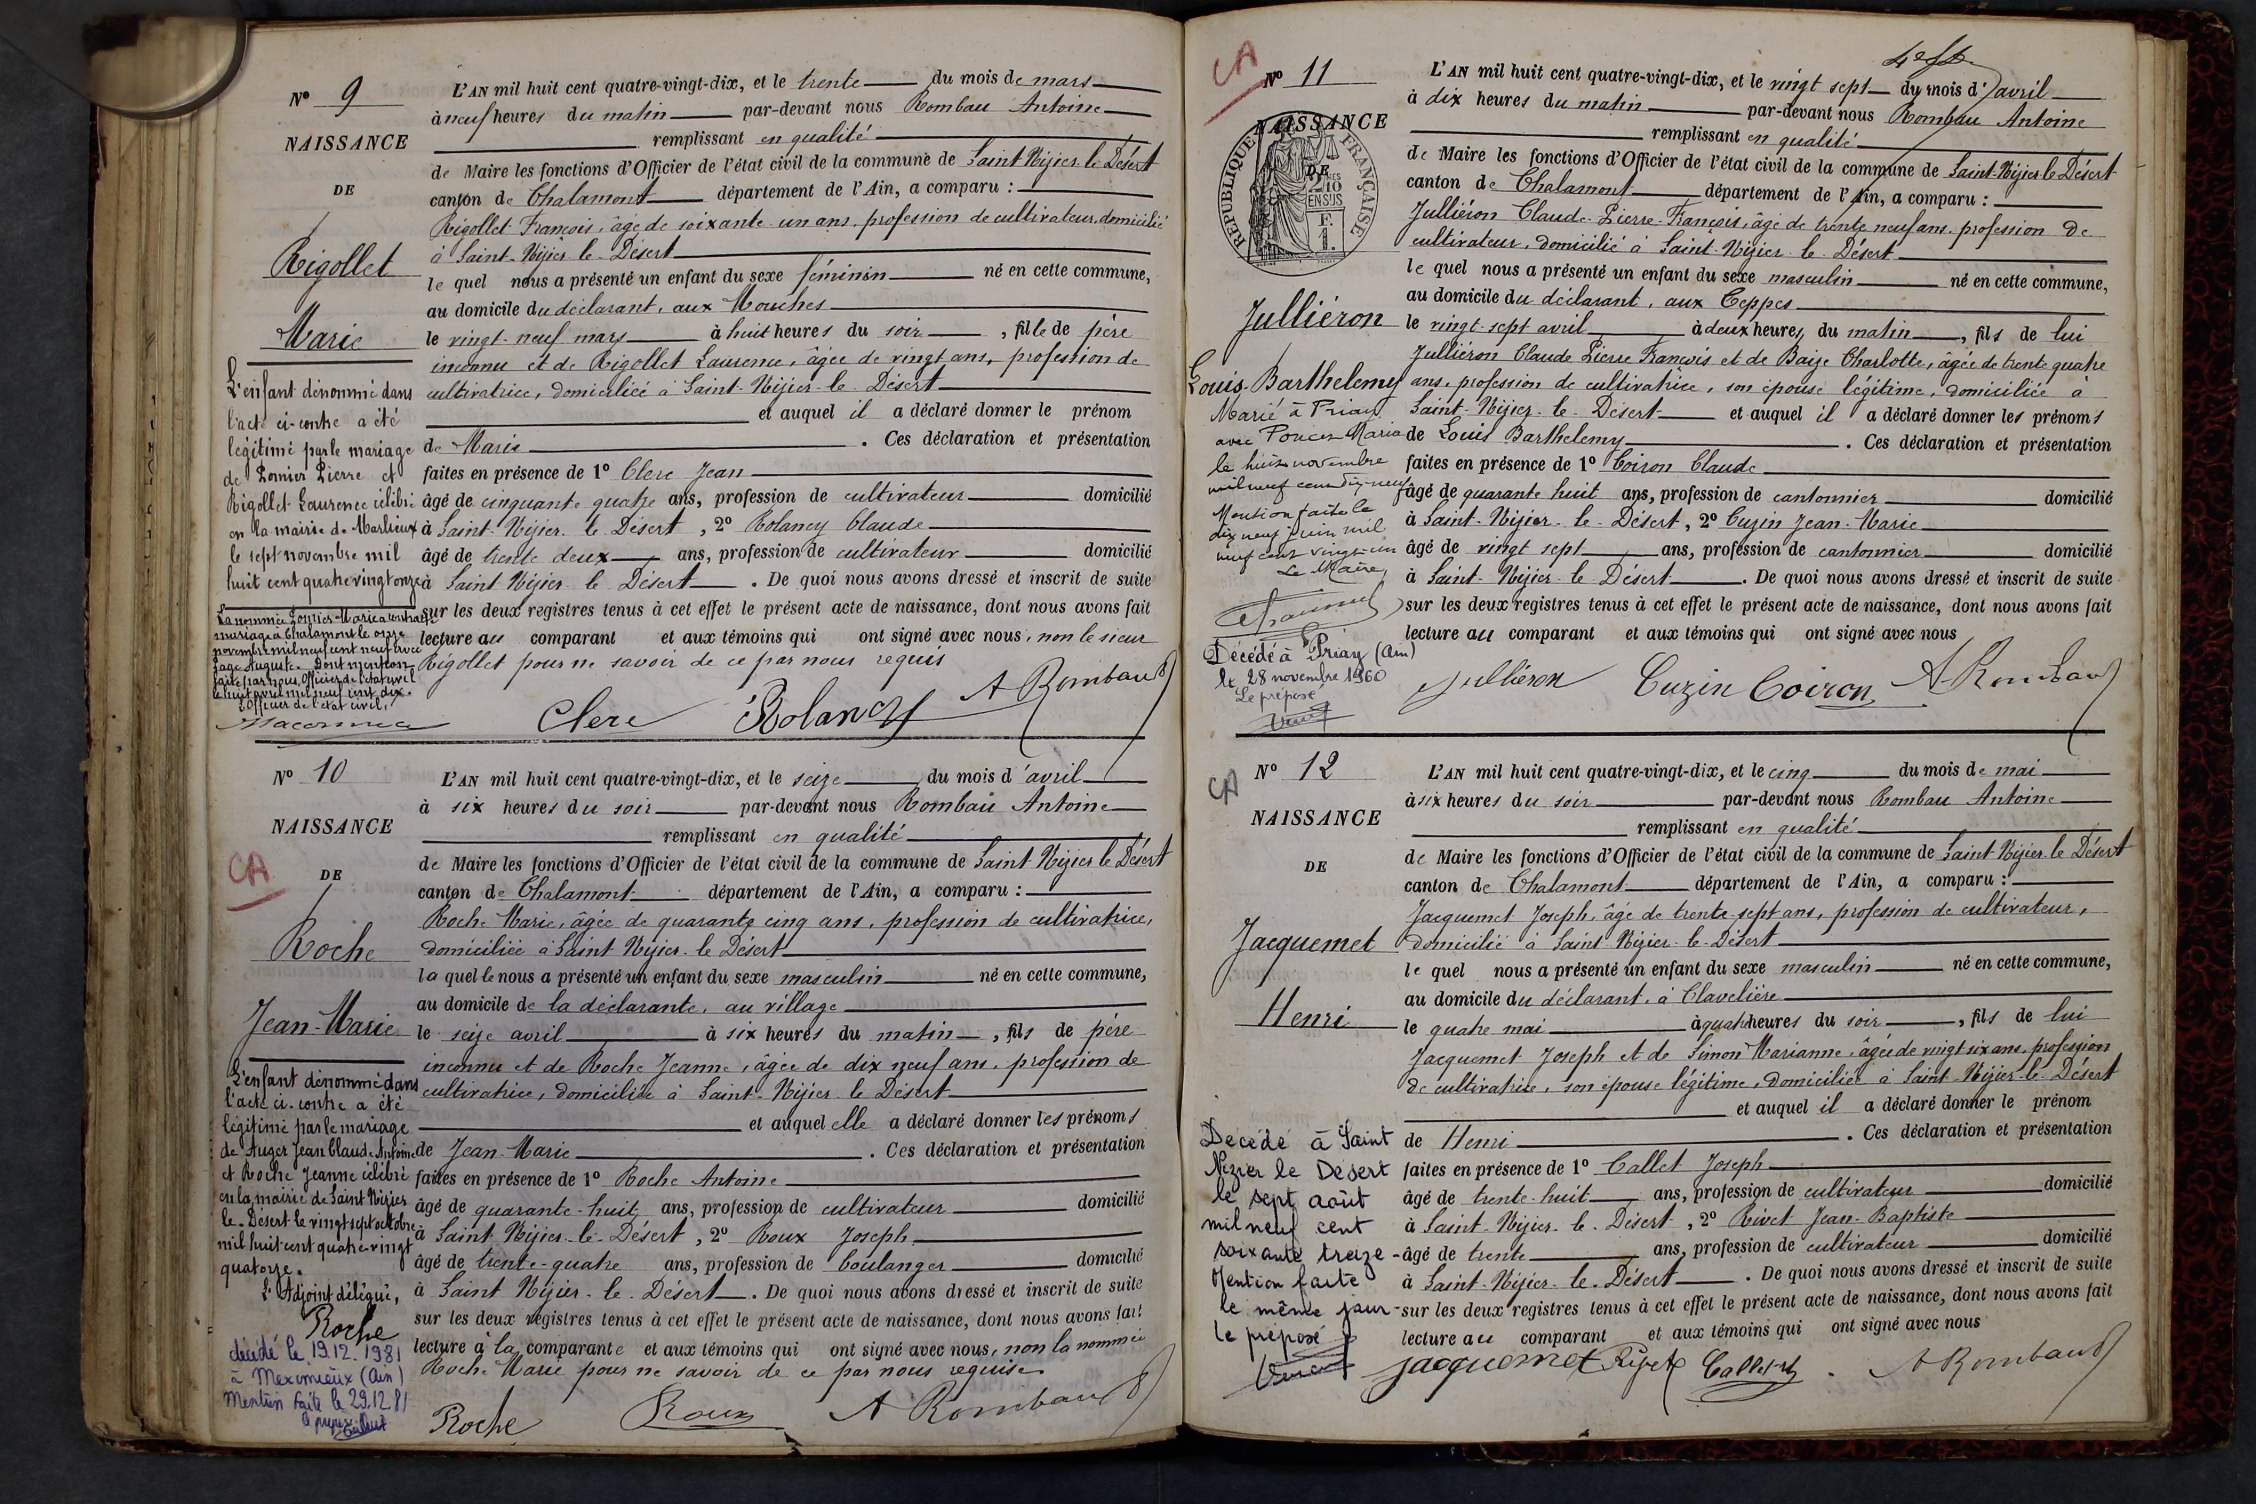 Nº 9
NAISSANCE
DE
Rigollet
Marie
L'AN mil huit cent quatre-vingt-dix, et le trente du mois de mars
à neuf heures du matin par-devant nous Rombau Antoine
remplissant en qualité
de Maire les fonctions d'Officier de l'état civil de la commune de Saint Nizier le Désert
canton de Chalamont département de l'Ain, a comparu :
Rigollet François, âgé de soixante-un ans, profession de cultivateur, domicilié
à Saint-Nizier-le-Désert
le quel nous a présenté un enfant du sexe féminin né en cette commune,
au domicile du déclarant, aux Mouches
le vingt-neuf mars à huit heures du soir, fille de père
inconnu et de Rigollet Laurence, âgée de vingt ans, profession de
cultivatrice, domiciliée à Saint-Nizier-le-Désert
et auquel il a déclaré donner le prénom
de Marie. Ces déclaration et présentation
faites en présence de 1º Clerc Jean
âgé de cinquante quatre ans, profession de cultivateur domicilié
à Saint-Nizier-le-Désert, 2º Bolancy Claude
âgé de trente deux ans, profession de cultivateur domicilié
à Saint Nizier-le-Désert. De quoi nous avons dressé et inscrit de suite
sur les deux registres tenus à cet effet le présent acte de naissance, dont nous avons fait
lecture au comparant et aux témoins qui ont signé avec nous, non le sieur
Rigollet pour ne savoir de ce par nous requis
Clerc Bolancy A Rombau
L'enfant dénommé dans
l'acte ci-contre a été
légitimé par le mariage
de Pomier Pierre et
Rigollet Laurence célébré
en la mairie de Marlieux
le sept novembre mil
huit cent quatre vingt onze
La nommée Pomier Marie a contracté
mariage à Chalamont le onze
novembre mil neuf cent neuf avec
Page Auguste. Dont mention
faite par nous, Officier de l'état civil
le huit avril mil neuf cent dix.
L'Officier de l'état civil,
Nº 10
NAISSANCE
CA
DE
Roche
Jean-Marie
L'AN mil huit cent quatre-vingt-dix, et le seize du mois d'avril
à six heures du soir par-devant nous Rombau Antoine
remplissant en qualité
de Maire les fonctions d'Officier de l'état civil de la commune de Saint Nizier le Désert
canton de Chalamont département de l'Ain, a comparu :
Roche Marie, âgée de quarante cinq ans, profession de cultivatrice,
domiciliée à Saint Nizier-le Désert
la quelle nous a présenté un enfant du sexe masculin né en cette commune,
au domicile de la déclarante, au village
le seize avril à six heures du matin, fils de père
inconnu et de Roche Jeanne, âgée de dix neuf ans, profession de
cultivatrice, domiciliée à Saint-Nizier-le Désert
et auquel elle a déclaré donner les prénoms
de Jean-Marie. Ces déclaration et présentation
faites en présence de 1º Roche Antoine
âgé de quarante-huit ans, profession de cultivateur domicilié
à Saint Nizier-le-Désert, 2º Roux Joseph
âgé de trente-quatre ans, profession de boulanger domicilié
à Saint Nizier-le-Désert. De quoi nous avons dressé et inscrit de suite
sur les deux registres tenus à cet effet le présent acte de naissance, dont nous avons fait
lecture à la comparante et aux témoins qui ont signé avec nous, non la nommée
Roche Marie pour ne savoir de ce par nous requise
Roche Roux A Rombau
L'enfant dénommé dans
l'acte ci-contre a été
légitimé par le mariage
de Auger Jean Claude Antoine
et Roche Jeanne célébré
en la mairie de Saint Nizier
le-Désert le vingt sept octobre
mil huit cent quatre-vingt
quatorze.
L'Adjoint délégué,
Roche
décédé le 19.12.1981
à Meximieux (Ain)
Mention faite le 29.12.81
CA
Nº 11
NAISSANCE
DE
RÉPUBLIQUE FRANÇAISE
Julliéron
Louis-Barthelemy
L'AN mil huit cent quatre-vingt-dix, et le vingt sept du mois d'avril
à dix heures du matin par-devant nous Rombau Antoine
remplissant en qualité
de Maire les fonctions d'Officier de l'état civil de la commune de Saint-Nizier-le Désert
canton de Chalamont département de l'Ain, a comparu :
Julliéron Claude-Pierre-François, âgé de trente neuf ans, profession de
cultivateur, domicilié à Saint-Nizier-le-Désert
le quel nous a présenté un enfant du sexe masculin né en cette commune,
au domicile du déclarant, aux Ceppes
le vingt-sept avril à deux heures du matin, fils de lui
Julliéron Claude Pierre François et de Baize Charlotte, âgée de trente quatre
ans, profession de cultivatrice, son épouse légitime, domiciliée à
Saint-Nizier-le-Désert et auquel il a déclaré donner les prénoms
de Louis Barthelemy. Ces déclaration et présentation
faites en présence de 1º Coiron Claude
âgé de quarante huit ans, profession de cantonnier domicilié
à Saint-Nizier-le-Désert, 2º Cuzin Jean-Marie
âgé de vingt sept ans, profession de cantonnier domicilié
à Saint-Nizier-le-Désert. De quoi nous avons dressé et inscrit de suite
sur les deux registres tenus à cet effet le présent acte de naissance, dont nous avons fait
lecture au comparant et aux témoins qui ont signé avec nous
Julliéron Cuzin Coiron A Rombau
Marié à Priay
avec Poncet Maria
le huit novembre
mil neuf cent dix-neuf
Mention faite le
dix neuf juin mil
neuf cent vingt-un
Le Maire,
Décédé à Priay (Ain)
le 28 novembre 1960
Le préposé
CA
Nº 12
NAISSANCE
DE
Jacquemet
Henri
L'AN mil huit cent quatre-vingt-dix, et le cinq du mois de mai
à six heures du soir par-devant nous Rombau Antoine
remplissant en qualité
de Maire les fonctions d'Officier de l'état civil de la commune de Saint-Nizier le Désert
canton de Chalamont département de l'Ain, a comparu :
Jacquemet Joseph, âgé de trente-sept ans, profession de cultivateur,
domicilié à Saint Nizier-le-Désert
le quel nous a présenté un enfant du sexe masculin né en cette commune,
au domicile du déclarant, à Clavelière
le quatre mai à quatre heures du soir, fils de lui
Jacquemet Joseph et de Simon Marianne, âgée de vingt six ans, profession
de cultivatrice, son épouse légitime, domiciliée à Saint-Nizier-le-Désert
et auquel il a déclaré donner le prénom
de Henri. Ces déclaration et présentation
faites en présence de 1º Callet Joseph
âgé de trente-huit ans, profession de cultivateur domicilié
à Saint-Nizier-le Désert, 2º Rivet Jean-Baptiste
âgé de trente ans, profession de cultivateur domicilié
à Saint-Nizier-le-Désert. De quoi nous avons dressé et inscrit de suite
sur les deux registres tenus à cet effet le présent acte de naissance, dont nous avons fait
lecture au comparant et aux témoins qui ont signé avec nous
Jacquemet Rivet Callet A Rombau
Décédé à Saint
Nizier le Désert
le sept août
mil neuf cent
soixante treize -
Mention faite
le même jour -
le préposé